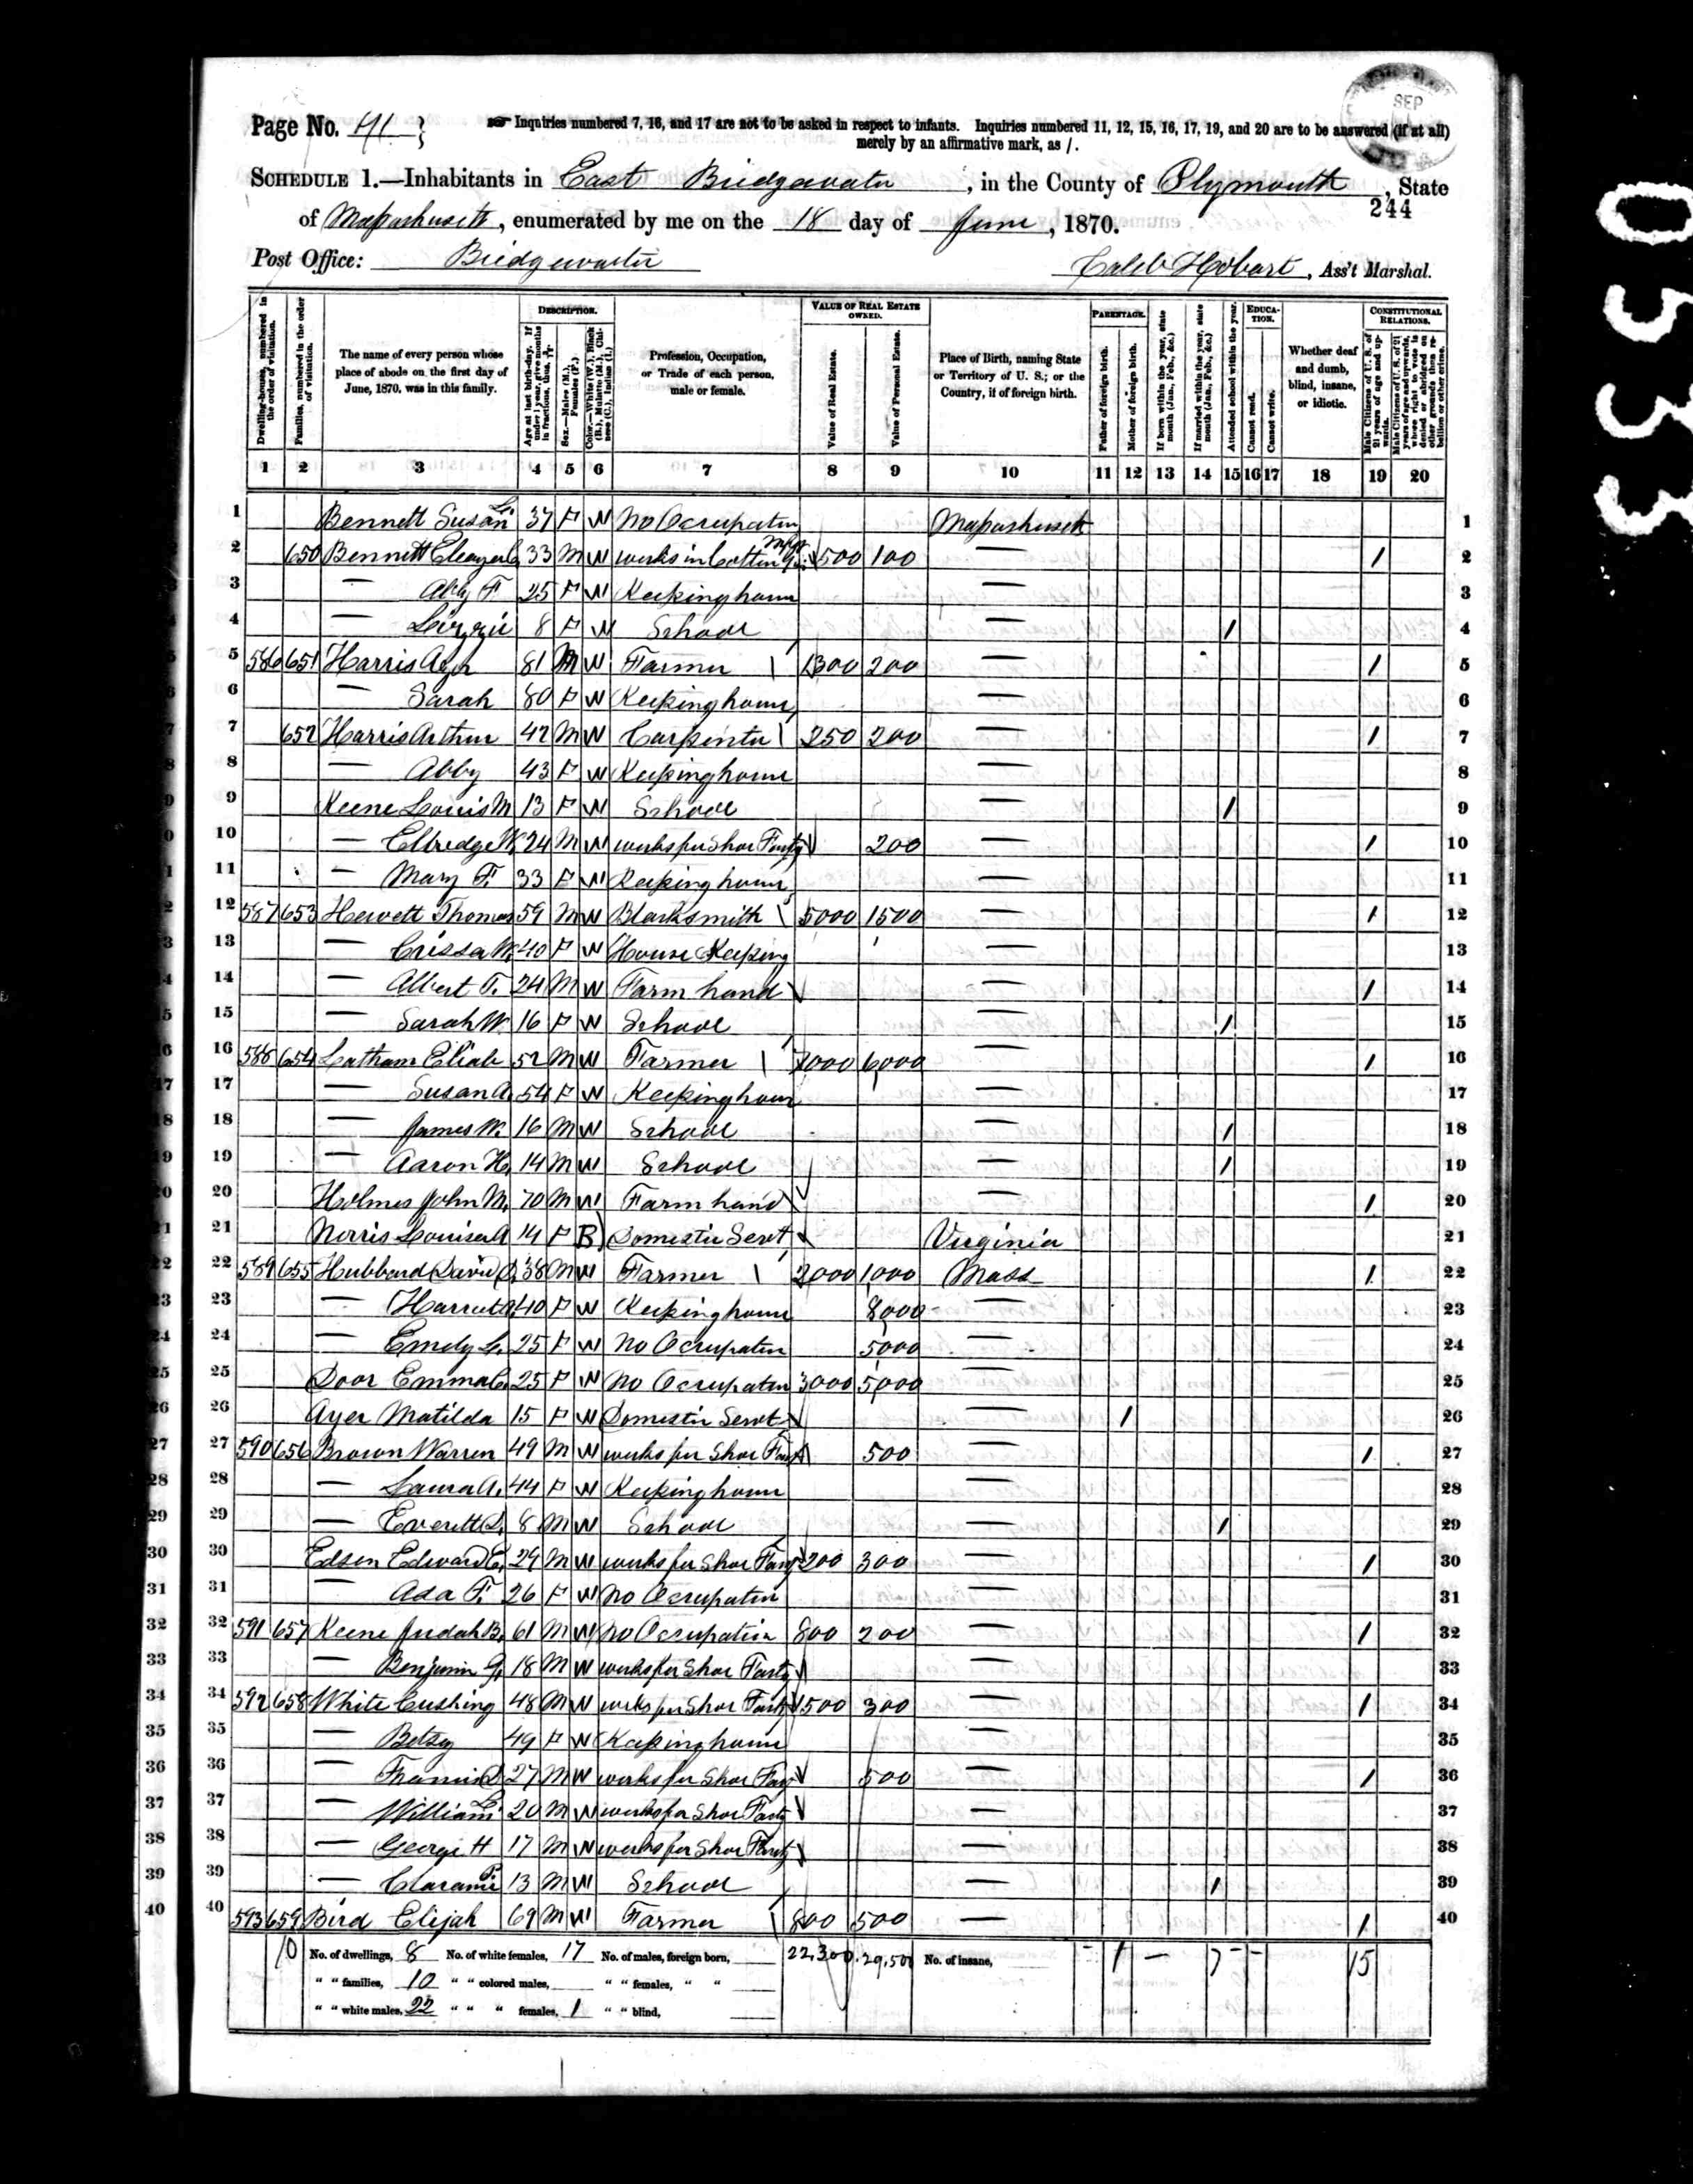 Page No. 41
Inquiries numbered 7, 16, and 17 are not to be asked in respect to infants. Inquiries numbered 11, 12, 15, 16, 17, 19, and 20 are to be answered (if at all)
merely by an affirmative mark, as /.
SEP
SCHEDULE 1.—Inhabitants in East Bridgewater, in the County of Plymouth, State
244
of Massachusetts, enumerated by me on the 18 day of June, 1870.
Post Office: Bridgewater
Caleb Hobart, Ass't Marshal.
0550
33
Dwelling-houses, numbered in the order of visitation.
Families, numbered in the order of visitation.
The name of every person whose place of abode on the first day of June, 1870, was in this family.
DESCRIPTION.
Age at last birth-day. If under 1 year, give months in fractions, thus, 3/12.
Sex.—Males (M.), Females (F.)
Color.—White (W.), Black (B.), Mulatto (M.), Chinese (C.), Indian (I.)
Profession, Occupation, or Trade of each person, male or female.
VALUE OF REAL ESTATE OWNED.
Value of Real Estate.
Value of Personal Estate.
Place of Birth, naming State or Territory of U. S.; or the Country, if of foreign birth.
PARENTAGE.
Father of foreign birth.
Mother of foreign birth.
If born within the year, state month (Jan., Feb., &c.)
If married within the year, state month (Jan., Feb., &c.)
Attended school within the year.
EDUCATION.
Cannot read.
Cannot write.
Whether deaf and dumb, blind, insane, or idiotic.
CONSTITUTIONAL RELATIONS.
Male Citizens of U. S. of 21 years of age and upwards.
Male Citizens of U. S. of 21 years of age and upwards, whose right to vote is denied or abridged on other grounds than rebellion or other crime.
1 2 3 4 5 6 7 8 9 10 11 12 13 14 15 16 17 18 19 20
1 Bennett Susan L. 37 F W No Occupation Massachusetts 1
2 650 Bennett Eleazer C. 33 M W works in Cotton Gin 1500 100 — / 2
3 — Abby F 25 F W Keeping house — 3
4 — Lizzie 8 F W School — / 4
5 586 651 Harris 81 M W Farmer 1300 200 — / 5
6 — Sarah 80 F W Keeping house — 6
7 652 Harris Arthur 42 M W Carpenter 250 200 — / 7
8 — Abby 43 F W Keeping house — 8
9 Keene Louis M 13 F W School — / 9
10 — Elbredge W. 24 M W works for Shoe Facty 200 — / 10
11 — Mary F. 33 F W Keeping house — 11
12 587 653 Hewett Thomas 59 M W Blacksmith 5000 1500 — / 12
13 — Crissa W. 40 F W House Keeping — 13
14 — Albert T. 24 M W Farm hand — / 14
15 — Sarah W 16 F W School — / 15
16 588 654 Latham Eliab 52 M W Farmer 7000 6000 — / 16
17 — Susan A. 54 F W Keeping house — 17
18 — James M. 16 M W School — / 18
19 — Aaron H. 14 M W School — / 19
20 Holmes John M. 70 M W Farm hand — / 20
21 Norris Louisa A 14 F B Domestic Servt Virginia 21
22 589 655 Hubbard David S. 38 M W Farmer 2000 1000 Mass / 22
23 — Harriet A 40 F W Keeping house 8000 — 23
24 — Emely L. 25 F W No Occupation 5000 — 24
25 Door Emma C. 25 F W No Occupation 3000 5,000 — 25
26 Ayer Matilda 15 F W Domestic Servt — / 26
27 590 656 Brown Warren 49 M W works for Shoe Facty 500 — / 27
28 — Laura A. 44 F W Keeping house — 28
29 — Everett L. 8 M W School — / 29
30 Edson Edward C. 29 M W works for Shoe Facty 200 300 — / 30
31 — Ada F. 26 F W No Occupation — 31
32 591 657 Keene Judah B. 61 M W No Occupation 800 200 — / 32
33 — Benjamin G. 18 M W works for Shoe Facty — 33
34 592 658 White Cushing 48 M W works for Shoe Facty 1500 300 — / 34
35 — Betsey 49 F W Keeping house — 35
36 — Francis D 27 M W works for Shoe Facty 500 — / 36
37 — William L. 20 M W works for Shoe Facty — 37
38 — George H 17 M W works for Shoe Facty — 38
39 — 13 M W School — / 39
40 593 659 Bird Elijah 69 M W Farmer 800 500 — / 40
10 No. of dwellings, 8 No. of white females, 17 No. of males, foreign born, 22,300 29,500 No. of insane, 1 7 15
" " families, 10 " " colored males, " " females, " "
" " white males, 22 " " " females, 1 " " blind,